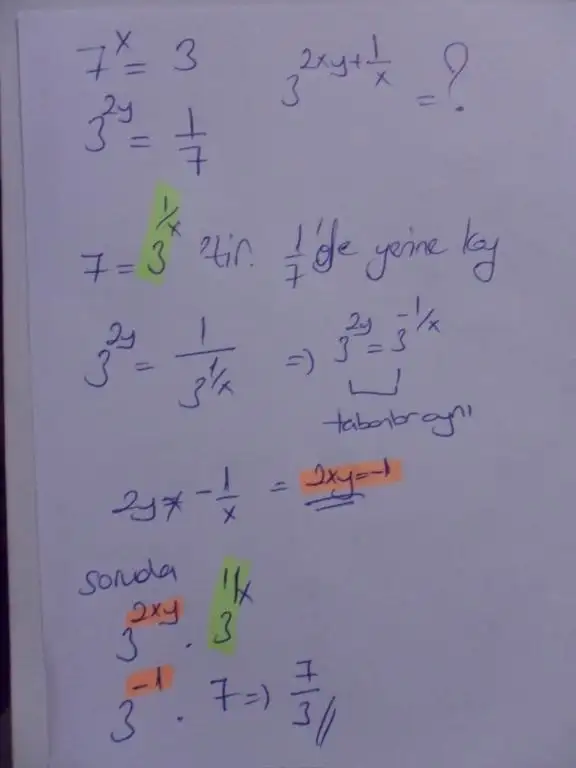 7^x = 3
3^(2xy+1/x) = ?
3^(2y) = 1/7
7 = 3^(1/x) 'tir. 1/7'de yerine koy
3^(2y) = 1/3^(1/x) => 3^(2y) = 3^(-1/x)
tabanlar aynı
2y = -1/x = 2xy = -1
soruda
3^(2xy) . 3^(1/x)
3^(-1) . 7 => 7/3 //